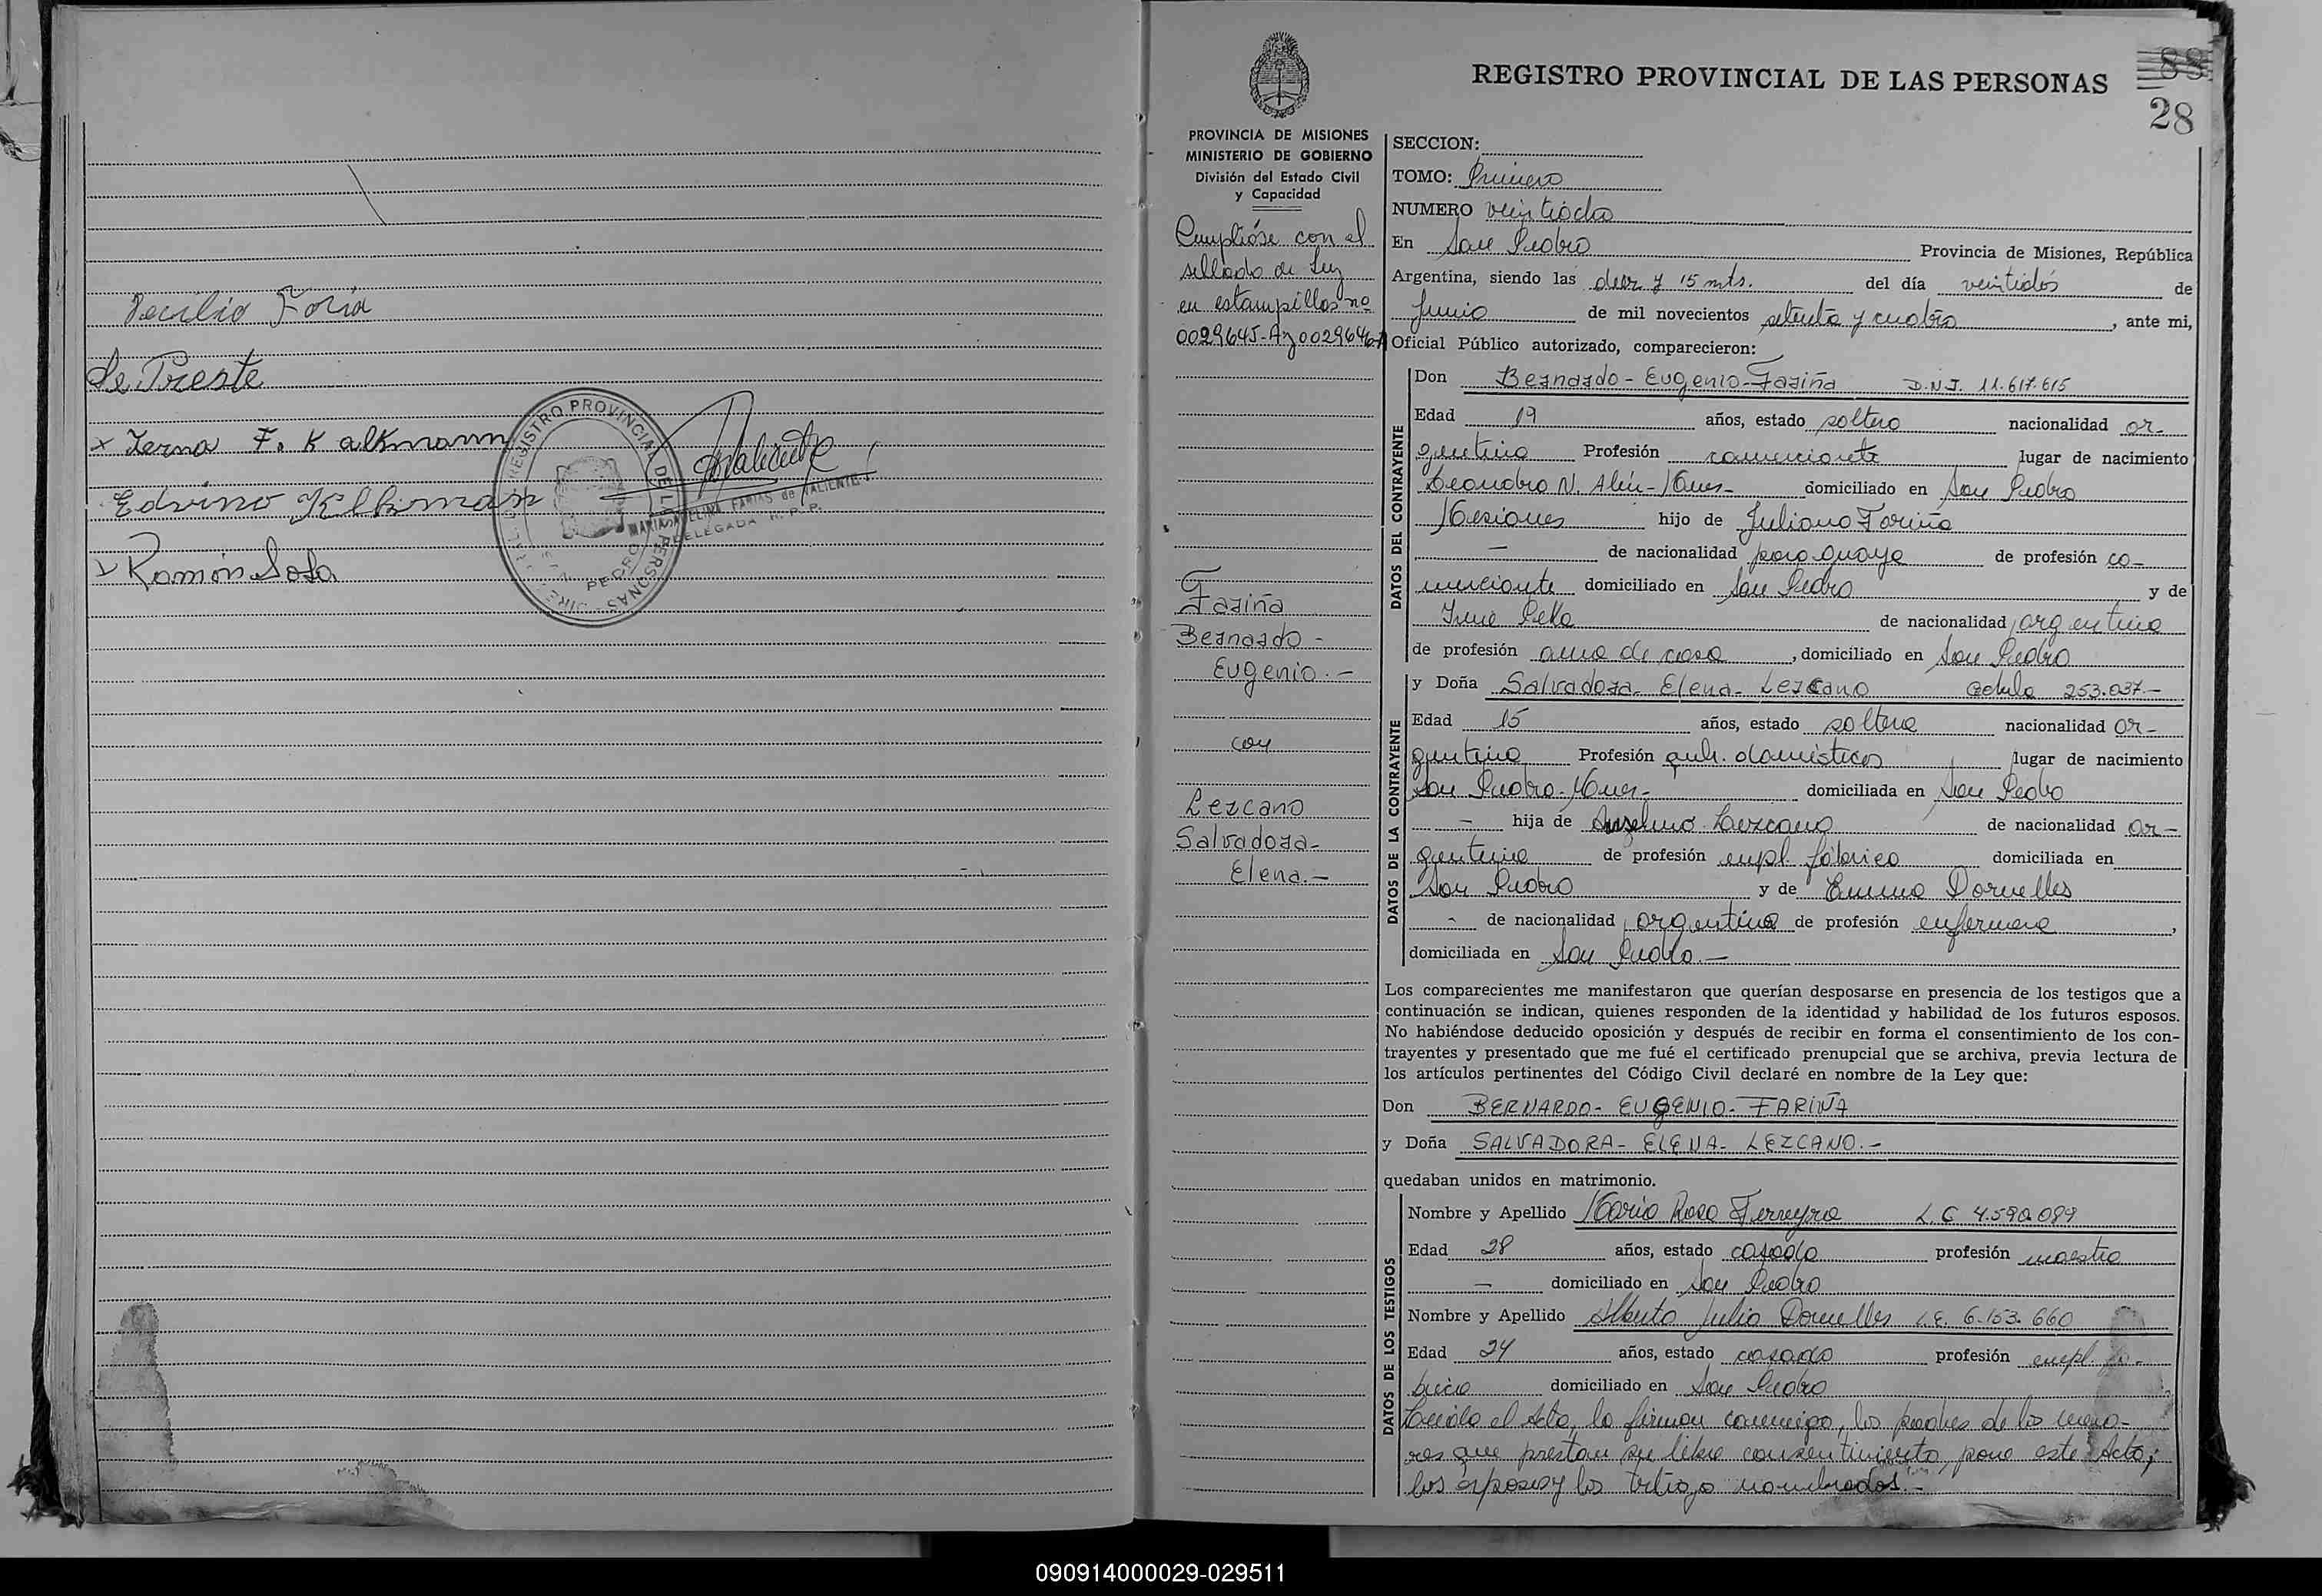 Faria
de Prieste
x Yerna F. Kalkmann
Edvino
Ramón Sosa
REGISTRO PROVINCIAL DE LAS PERSONAS
MARIA AVELINA FARIAS de VALIENTE
DELEGADA R. P. P.
REGISTRO PROVINCIAL DE LAS PERSONAS
88
28
PROVINCIA DE MISIONES
MINISTERIO DE GOBIERNO
División del Estado Civil
y Capacidad
Cumplióse con el
sellado de Ley
en estampillas nº
0029645-A y 0029646-A
Fariña
Bernardo -
Eugenio.-
con
Lezcano
Salvadora-
Elena.-
SECCION:
TOMO: Primero
NUMERO veintiocho
En San Pedro Provincia de Misiones, República
Argentina, siendo las diez y 15 mts. del día veintidós de
Junio de mil novecientos setenta y cuatro, ante mi,
Oficial Público autorizado, comparecieron:
DATOS DEL CONTRAYENTE
Don Bernardo - Eugenio - Fariña D.N.I. 11.617.615
Edad 19 años, estado soltero nacionalidad ar-
gentina Profesión comerciante lugar de nacimiento
Leandro N. Alén - Mnes - domiciliado en San Pedro
Misiones hijo de Juliano Fariña
— de nacionalidad paraguaya de profesión co-
merciante domiciliado en San Pedro y de
Irene de nacionalidad argentina
de profesión ama de casa, domiciliado en San Pedro
DATOS DE LA CONTRAYENTE
y Doña Salvadora - Elena - Lezcano Cedula 253.037.-
Edad 15 años, estado soltera nacionalidad ar-
gentina Profesión queh. domésticos lugar de nacimiento
San Pedro - Mnes - domiciliada en San Pedro
— hija de Anselmo Lezcano de nacionalidad ar-
gentina de profesión empl. fábrica domiciliada en
San Pedro y de Emma Dornelles
- de nacionalidad argentina de profesión enfermera,
domiciliada en San Pedro.—
Los comparecientes me manifestaron que querían desposarse en presencia de los testigos que a
continuación se indican, quienes responden de la identidad y habilidad de los futuros esposos.
No habiéndose deducido oposición y después de recibir en forma el consentimiento de los con-
trayentes y presentado que me fué el certificado prenupcial que se archiva, previa lectura de
los artículos pertinentes del Código Civil declaré en nombre de la Ley que:
Don BERNARDO - EUGENIO - FARIÑA
y Doña SALVADORA - ELENA - LEZCANO.-
quedaban unidos en matrimonio.
DATOS DE LOS TESTIGOS
Nombre y Apellido María Rosa Ferreyra L.C 4.590.089
Edad 28 años, estado casada profesión maestra
— domiciliado en San Pedro
Nombre y Apellido Alberto Julio Dornelles L.E. 6.153.660
Edad 24 años, estado casado profesión empl. fá-
brica domiciliado en San Pedro
Leída el Acta, la firman conmigo, los padres de los meno-
res que prestan su libre consentimiento, para este Acto;
los esposos y los testigo nombrados.-
090914000029-029511